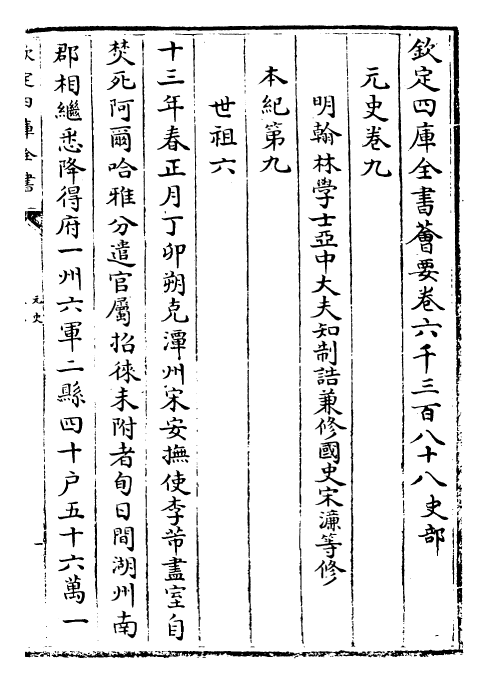 欽定四庫全書薈要卷六千三百八十八史部
元史卷九
明翰林學士亞中大夫知制誥兼修國史宋濂等修
本紀第九
世祖六
十三年春正月丁卯朔克潭州宋安撫使李芾盡室自
焚死阿爾哈雅分遣官屬招徠未附者旬日間湖州南
郡相繼悉降得府一州六軍二縣四十户五十六萬一
欽定四庫全書
元史
一